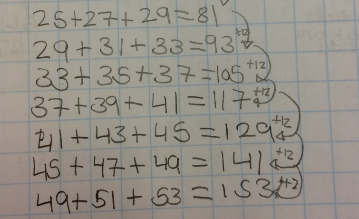 25+27+29=81
29+31+33=93 +12
33+35+37=105 +12
37+39+41=117 +12
41+43+45=129 +12
45+47+49=141 +12
49+51+53=153 +12